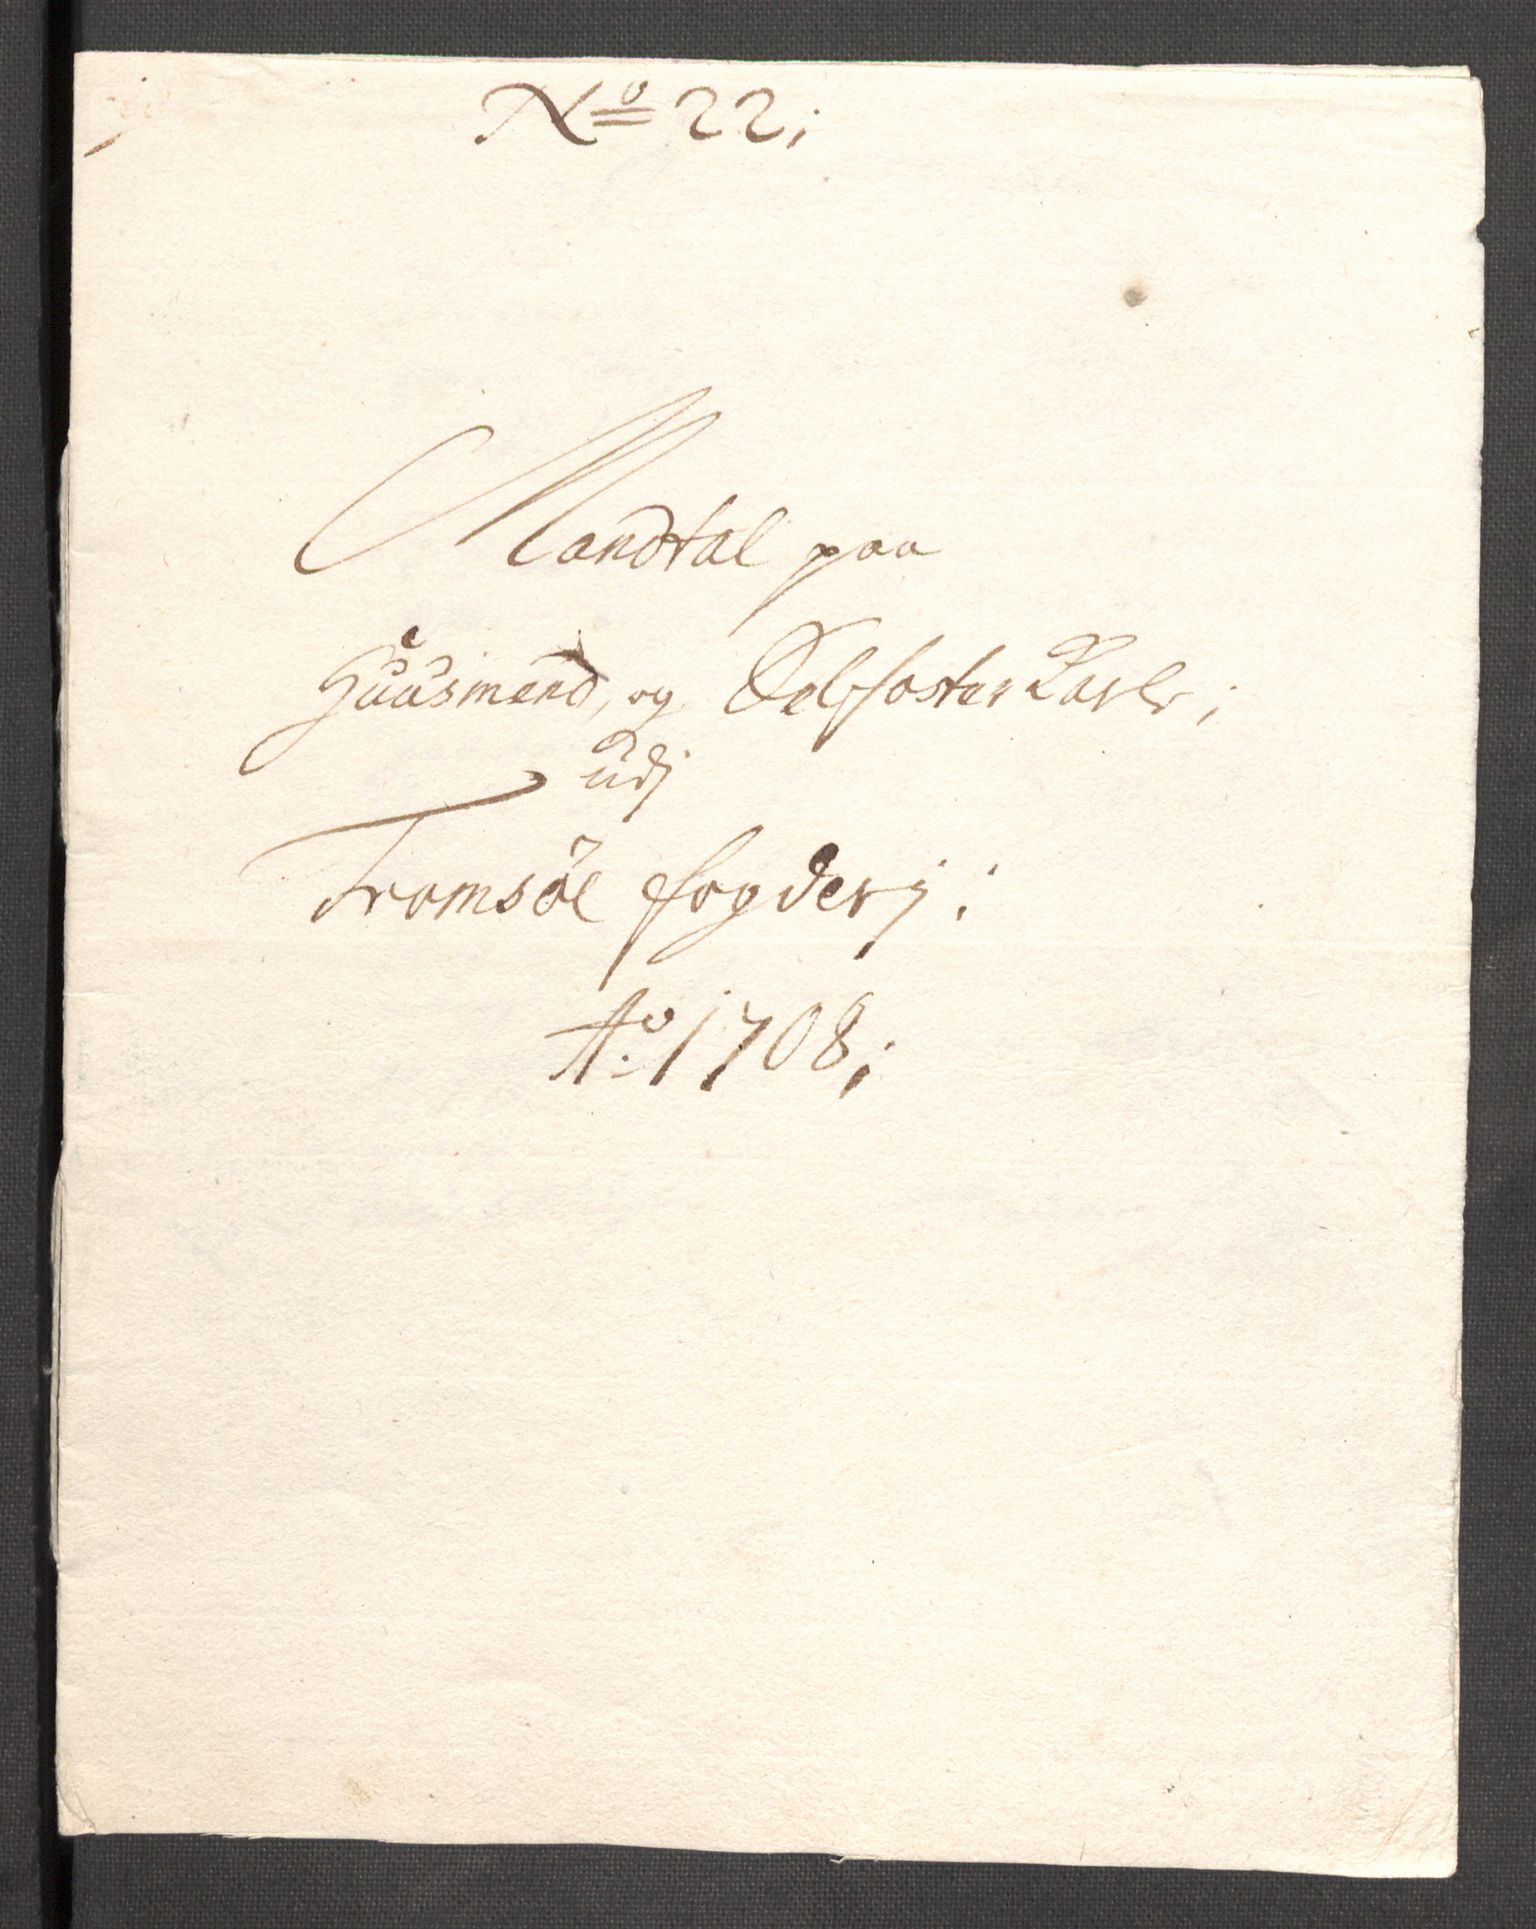 No 22;
Mandtal paa
Huusmend, og Selfoster Karle;
udj
Tromsöe fogderj:
Ao: 1708;